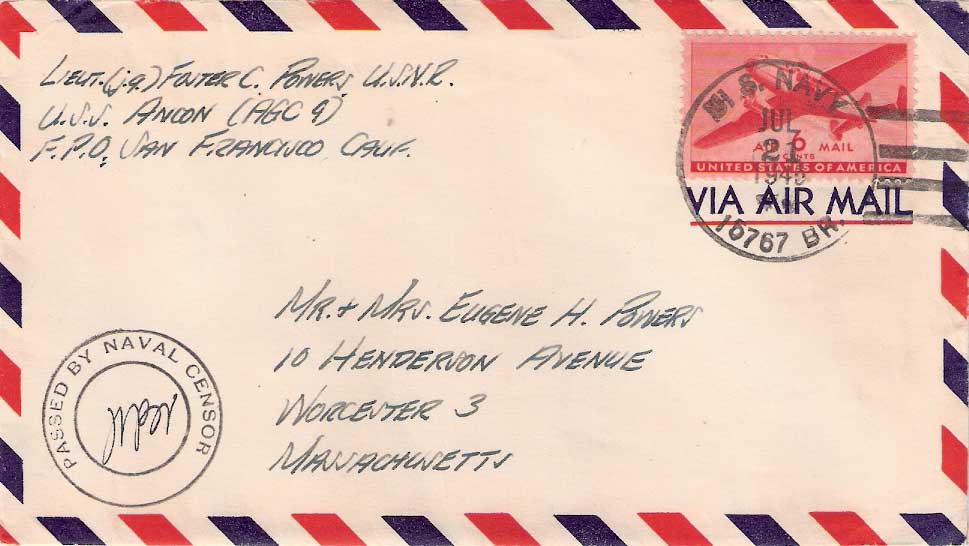 LIEUT. (j.g.) FOSTER C. POWERS U.S.N.R.
U.S.S. ANCON (AGC 4)
F.P.O. SAN FRANCISCO, CALIF.
U.S. NAVY
JUL
21
194
15767 BR.
AIR 6 MAIL
CENTS
UNITED STATES OF AMERICA
VIA AIR MAIL
MR. + MRS. EUGENE H. POWERS
10 HENDERSON AVENUE
WORCESTER 3
MASSACHUSETTS
PASSED BY NAVAL CENSOR